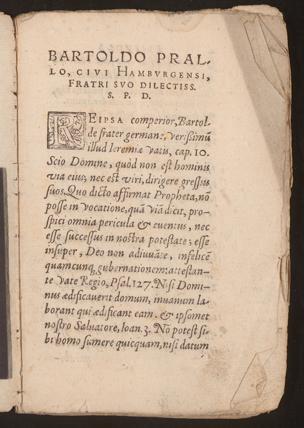 BARTOLDO PRAL-
LO, CIVI HAMBVRGENSI,
FRATRI SVO DILECTISS.
S. P. D.
REIPSA comperior, Bartol-
de frater germane, verißimũ
illud Ieremiæ vatis, cap. 10.
Scio Domine, quòd non est hominis
via eius, nec est viri, dirigere gressus
suos. Quo dicto affirmat Propheta, nõ
posse in vocatione, quã viã dicit, pro-
spici omnia pericula & euentus, nec
esse successus in nostra potestate: esse
insuper, Deo non adiuuãte, infelicẽ
quamcunq; gubernationem: attestan-
te Vate Regio, Psal. 127. Nisi Domi-
nus ædificauerit domum, in vanum la-
borant qui ædificant eam. & ipsomet
nostro Saluatore, Ioan. 3. Nõ potest si-
bi homo sumere quicquam, nisi datum